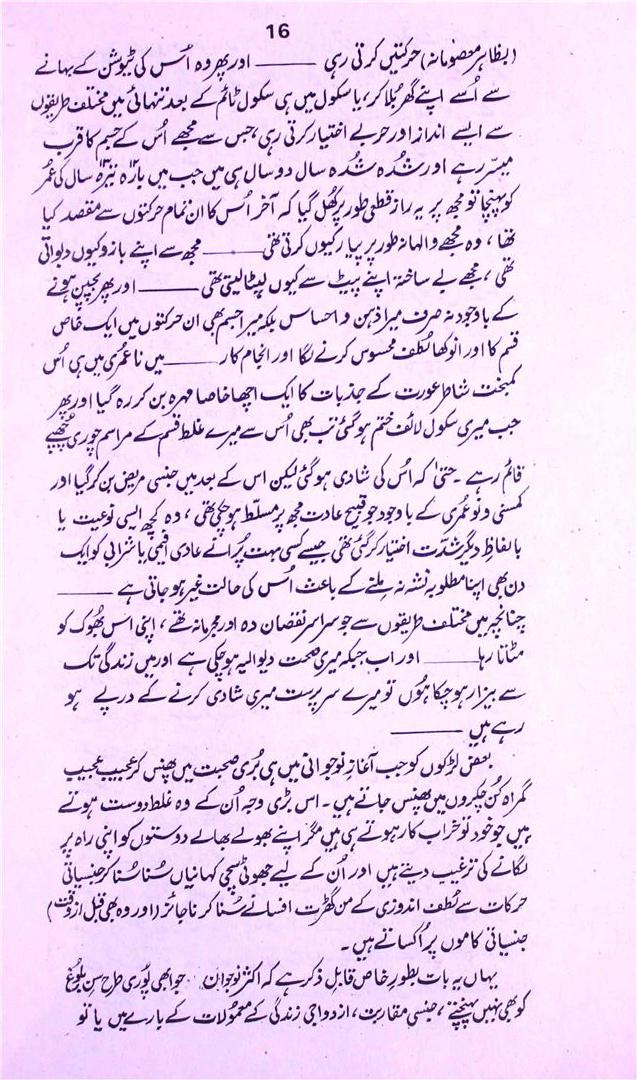 16
(بظاہر معصومانہ) حرکتیں کرتی رہی ——— اور پھر وہ اُس کی ٹیوشن کے بہانے
سے اُسے اپنے گھر بُلا کر، یا سکول میں ہی سکول ٹائم کے بعد تنہائی میں مختلف طریقوں
سے ایسے انداز اور حربے اختیار کرتی رہی، جس سے مجھے اُس کے جسم کا قرب
میسّر رہے اور شُدہ شُدہ سال دو سال ہی میں جب میں بارہ تیرہ سال کی عُمر
کو پہنچا تو مجھ پر یہ راز قطعی طور پر کھُل گیا کہ آخر اُس کا ان تمام حرکتوں سے مقصد کیا
تھا، وہ مجھے والہانہ طور پر پیار کیوں کرتی تھی ——— مجھ سے اپنے بازو کیوں دبواتی
تھی، مجھے بے ساختہ اپنے پیٹ سے کیوں لپٹا لیتی تھی ——— اور پھر بچپن ہونے
کے باوجود نہ صرف میرا ذہن و احساس بلکہ میرا جسم بھی ان حرکتوں میں ایک خاص
قسم کا اور انوکھا لُطف محسوس کرنے لگا اور انجام کار ——— میں نا عمُری میں ہی اُس
کمبخت شاطر عورت کے جذبات کا ایک اچھا خاصا مہرہ بن کر رہ گیا اور پھر
جب میری سکول لائف ختم ہو گئی تب بھی اُس سے میرے غلط قسم کے مراسم چوری چُھپے
قائم رہے۔ حتیٰ کہ اُس کی شادی ہو گئی لیکن اس کے بعد میں جنسی مریض بن کر گیا اور
کمسنی و نو عُمری کے باوجود جو قبیح عادت مجھ پر مسلّط ہو چکی تھی، وہ کچھ ایسی نوعیت یا
بالفاظِ دیگر شدّت اختیار کر گئی تھی جیسے کسی بہت پُرانے عادی افیمی یا شرابی کو ایک
دن بھی اپنا مطلوبہ نشہ نہ ملنے کے باعث اُس کی حالت غیر ہو جاتی ہے ———
چنانچہ میں مختلف طریقوں سے جو سراسر نقصان دہ اور مجرمانہ تھے، اپنی اس بھُوک کو
مٹاتا رہا ——— اور اب جبکہ میری صحت دیوالیہ ہو چکی ہے اور میں زندگی تک
سے بیزار ہو چکا ہوُں تو میرے سرپرست میری شادی کرنے کے درپے ہو
رہے ہیں ———
بعض لڑکوں کو جب آغازِ نوجوانی میں ہی بُری صحبت میں پھنس کر عجیب عجیب
گمراہ کُن چکروں میں پھنس جاتے ہیں۔ اس بڑی وجہ اُن کے وہ غلط دوست ہوتے
ہیں جو خود تو خراب کار ہوتے ہی ہیں مگر اپنے بھولے بھالے دوستوں کو اپنی راہ پر
لگانے کی ترغیب دیتے ہیں اور اُن کے لیے جھوٹی سچی کہانیاں سُنا سُنا کر جنسیاتی
حرکات سے لُطف اندوزی کے من گھڑت افسانے سُنا کر ناجائز (اور وہ بھی قبل از وقت)
جنسیاتی کاموں پر اُکساتے ہیں۔
یہاں یہ بات بطورِ خاص قابلِ ذکر ہے کہ اکثر نوجوان جو ابھی پُوری طرح سنِ بلوُغ
کو بھی نہیں پہنچتے، جنسی مقاربت، ازدواجی زندگی کے معمولات کے بارے میں یا تو